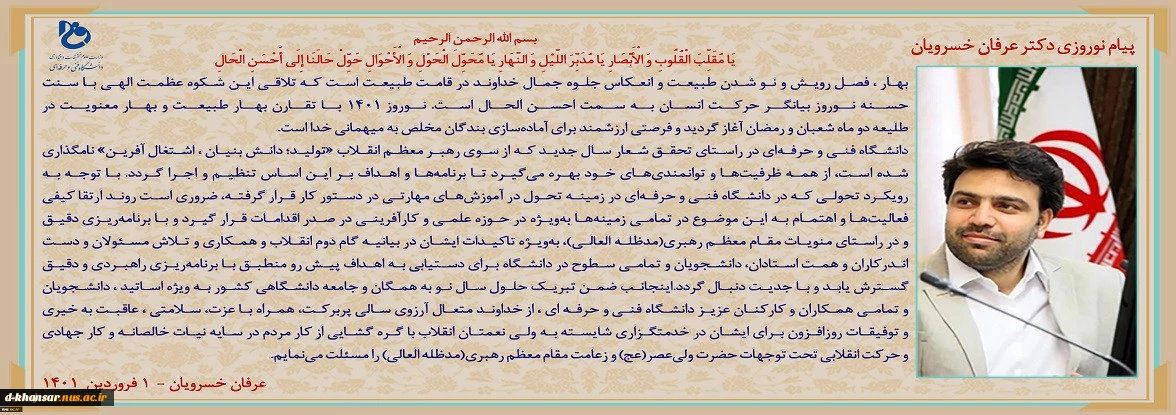 پیام نوروزی دکتر عرفان خسرویان
وزارت علوم، تحقیقات و فناوری
دانشگاه فنی و حرفه‌ای
بسم الله الرحمن الرحیم
یَا مُقَلِّبَ الْقُلُوبِ وَ الْأَبْصَارِ یَا مُدَبِّرَ اللَّیْلِ وَ النَّهَارِ یَا مُحَوِّلَ الْحَوْلِ وَ الْأَحْوَالِ حَوِّلْ حَالَنَا إِلَى أَحْسَنِ الْحَالِ
بهار ، فصل رویش و نو شدن طبیعت و انعکاس جلوه جمال خداوند در قامت طبیعت است که تلاقی این شکوه عظمت الهی با سنت
حسنه نوروز بیانگر حرکت انسان به سمت احسن الحال است. نوروز ۱۴۰۱ با تقارن بهار طبیعت و بهار معنویت در
طلیعه دو ماه شعبان و رمضان آغاز گردید و فرصتی ارزشمند برای آماده‌سازی بندگان مخلص به میهمانی خدا است.
دانشگاه فنی و حرفه‌ای در راستای تحقق شعار سال جدید که از سوی رهبر معظم انقلاب «تولید؛ دانش بنیان ، اشتغال آفرین» نامگذاری
شده است، از همه ظرفیت‌ها و توانمندی‌های خود بهره می‌گیرد تا برنامه‌ها و اهداف بر این اساس تنظیم و اجرا گردد. با توجه به
رویکرد تحولی که در دانشگاه فنی و حرفه‌ای در زمینه تحول در آموزش‌های مهارتی در دستور کار قرار گرفته، ضروری است روند ارتقا کیفی
فعالیت‌ها و اهتمام به این موضوع در تمامی زمینه‌ها به‌ویژه در حوزه علمی و کارآفرینی در صدر اقدامات قرار گیرد و با برنامه‌ریزی دقیق
و در راستای منویات مقام معظم رهبری(مدظله العالی)، به‌ویژه تاکیدات ایشان در بیانیه گام دوم انقلاب و همکاری و تلاش مسئولان و دست
اندرکاران و همت استادان، دانشجویان و تمامی سطوح در دانشگاه برای دستیابی به اهداف پیش رو منطبق با برنامه‌ریزی راهبردی و دقیق
گسترش یابد و با جدیت دنبال گردد.اینجانب ضمن تبریک حلول سال نو به همگان و جامعه دانشگاهی کشور به ویژه اساتید ، دانشجویان
و تمامی همکاران و کارکنان عزیز دانشگاه فنی و حرفه ای ، از خداوند متعال آرزوی سالی پربرکت، همراه با عزت، سلامتی ، عاقبت به خیری
و توفیقات روزافزون برای ایشان در خدمتگزاری شایسته به ولی نعمتان انقلاب با گره گشایی از کار مردم در سایه نیات خالصانه و کار جهادی
و حرکت انقلابی تحت توجهات حضرت ولی‌عصر(عج) و زعامت مقام معظم رهبری(مدظله العالی) را مسئلت می‌نمایم.
عرفان خسرویان - ۱ فروردین ۱۴۰۱
d-khansar.nus.ac.ir